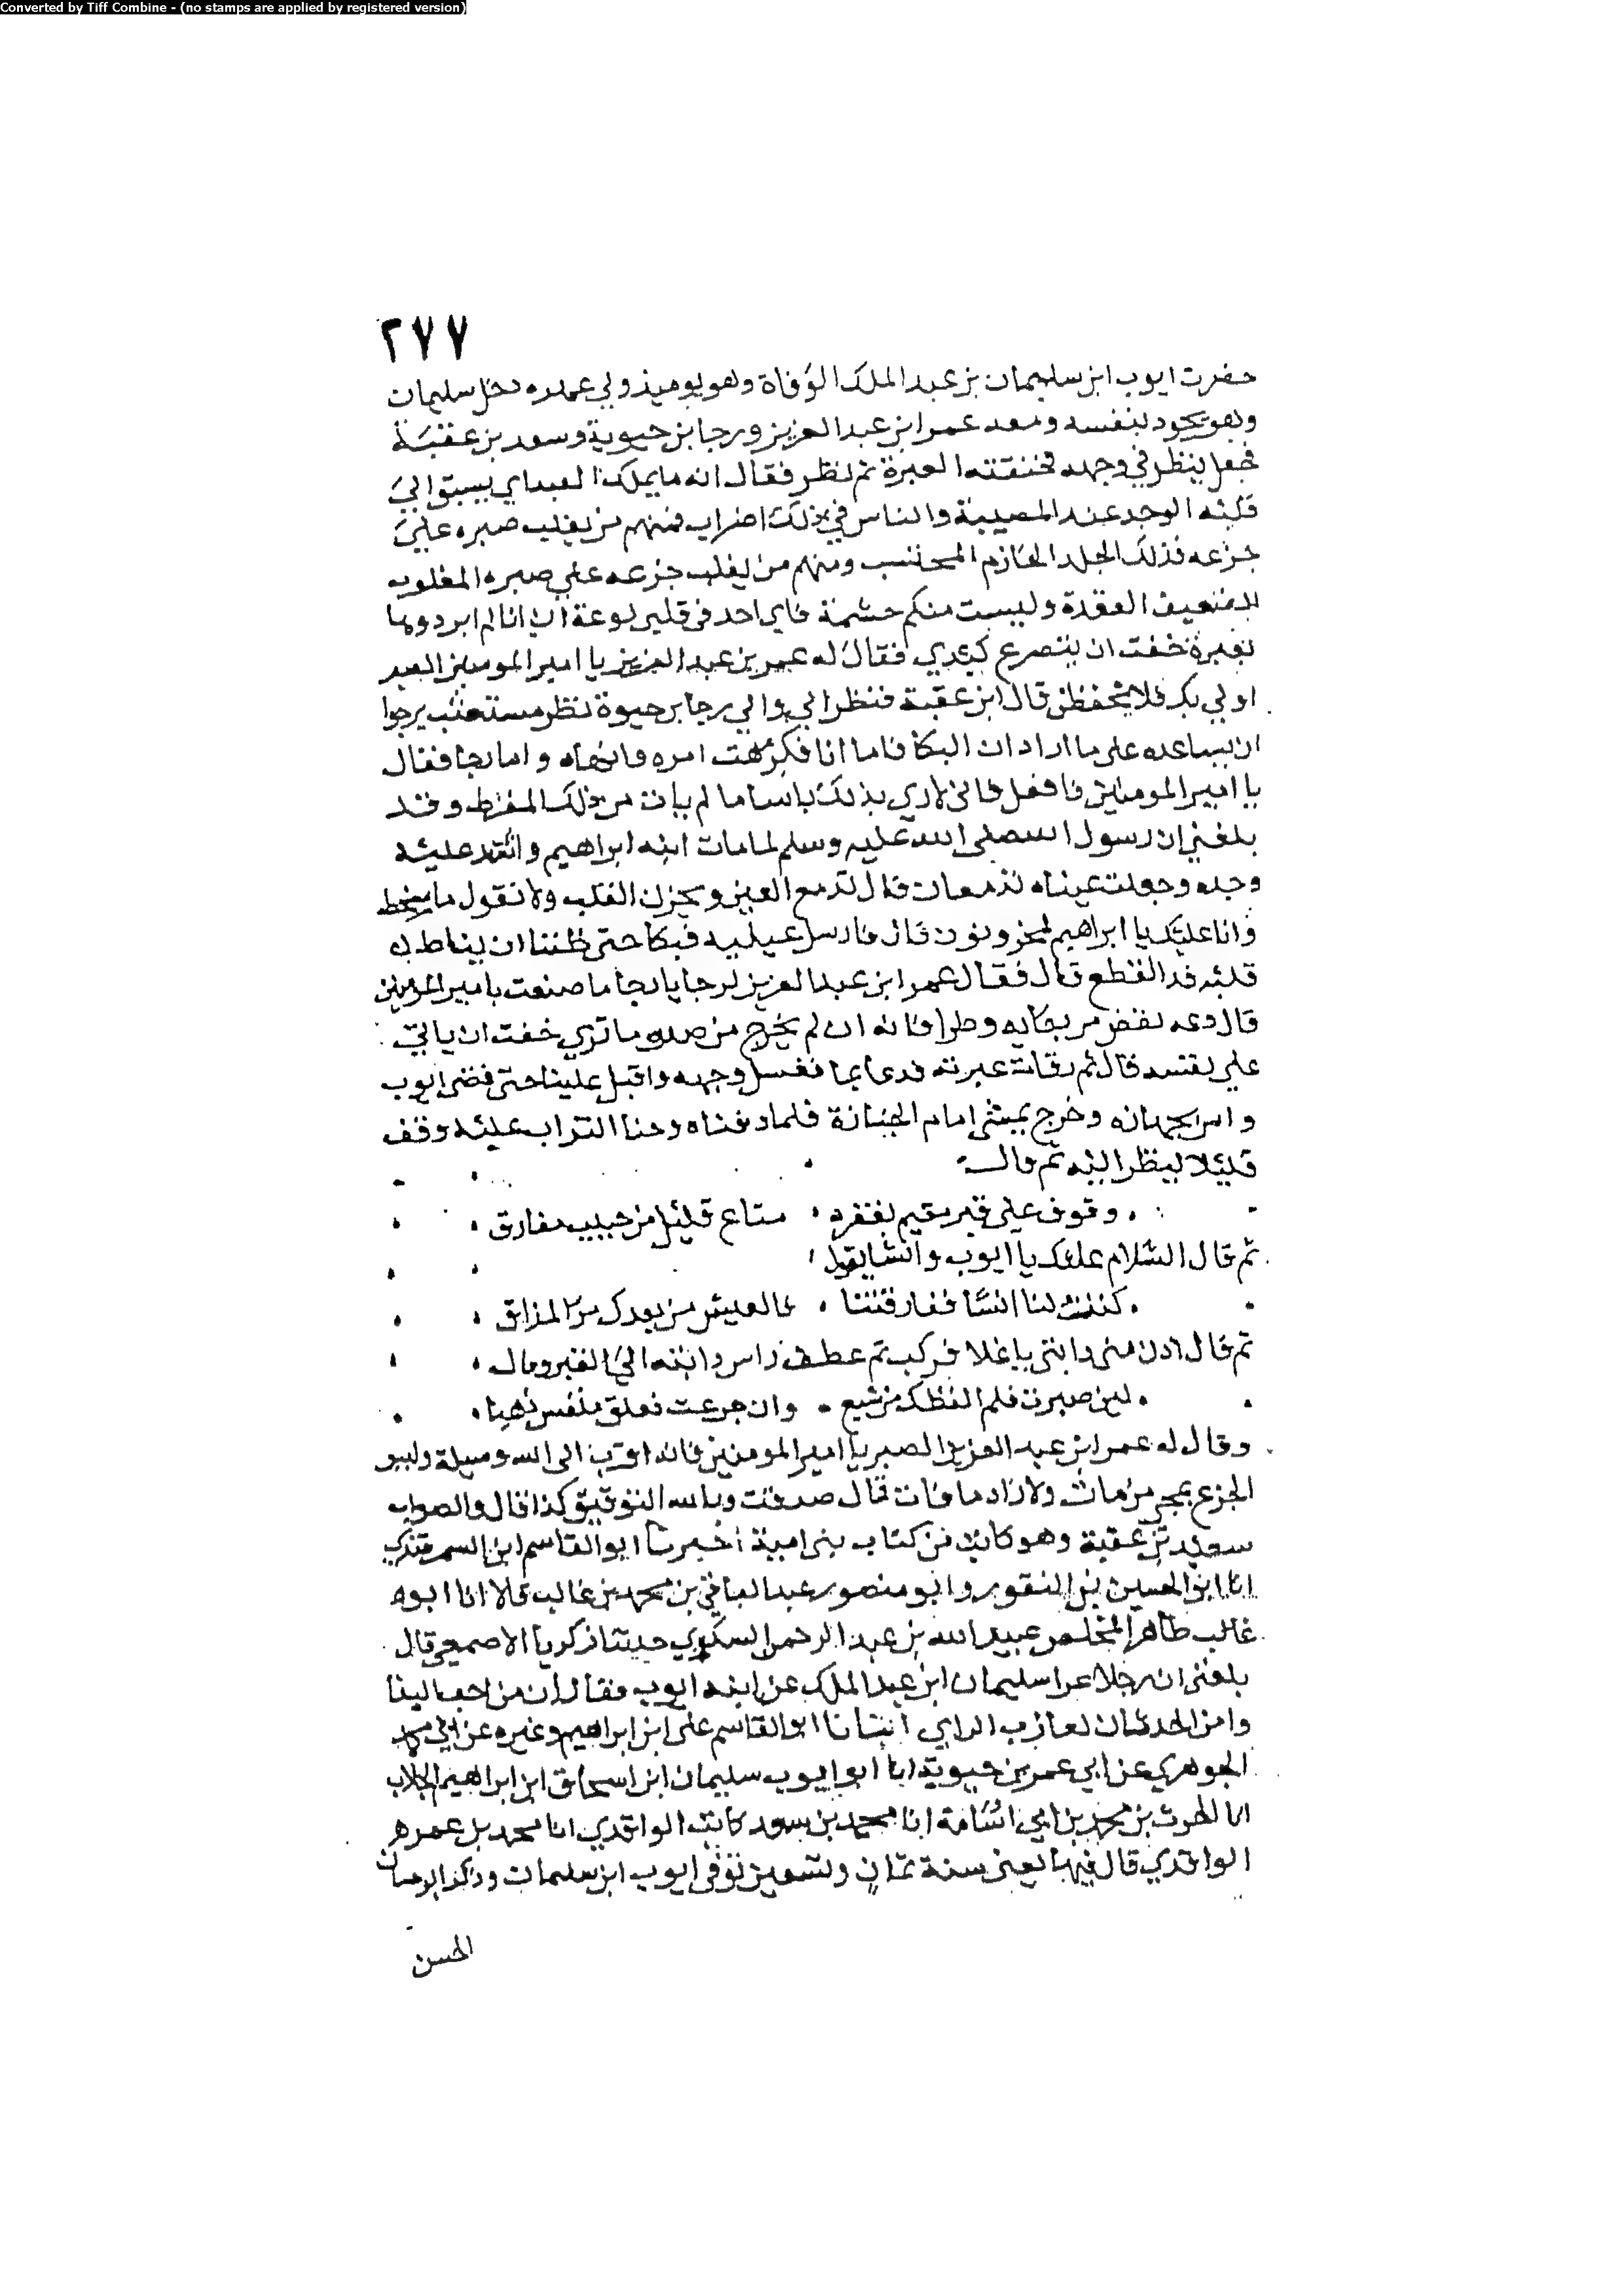 Converted by Tiff Combine - (no stamps are applied by registered version)
٢٧٧
حضرت ايوب ابن سليمان بن عبد الملك الوفاة وهو يوميذ ولي عهده دخل سليمان
وهو يجود بنفسه ومعه عمر ابن عبد العزيز ورجا بن حيوية وسعد بن عقبة
فجعل ينظر في وجهه فخنقته العبرة ثم نظر فقال انه ما يملك العبد اي يسبق الي
قلبه الوجد عند المصيبة والناس في ذلك اضراب فمنهم من يغلب صبره علي
جزعه فذلك الجلد الحازم المحتسب ومنهم من يغلب جزعه علي صبره المغلوب
الضعيف العقدة وليست منكم حشمة فاي احد في قلبي لوعة ان انا لم ابردوها
بعبرة خفت ان يتصرع كبدي فقال له عمر بن عبد العزيز يا امير المومنين الصبر
اولي بك فلا يحفظن قال ابن عقبة فنظر الي والي رجا بن حيوة نظر مستعتب يرجوا
ان يساعده علي ما اراد ان البكا فاما انا فكرهت امره وانهاه واما رجا فقال
يا امير المومنين فافعل فاني لا اري بذلك باسا ما لم يات من ذلك المفرط وقد
بلغني ان رسول الله صلي الله عليه وسلم لما مات ابنه ابراهيم واشتد عليه
وجده وجعلت عيناه تدمعان قال تدمع العين ويحزن القلب ولا نقول ما يسخط
وانا عليك يا ابراهيم لمحزونون قال فارسل عينيه فبكا حتي ظننا ان نياط
قلبه قد انقطع قال فقال عمر ابن عبد العزيز لرجا يا رجا ما صنعت بامير المومنين
قال دعه يقض من بكايه وطرا فانه ان لم يخرج من صدره ما تري خفت ان ياتي
علي نفسه قال ثم رقات عبرته فدعا بما فغسل وجهه واقبل علينا حتي قضي ايوب
وامر بجهازه وخرج يمشي امام الجنازة فلما دفناه وحثا التراب عليه وقف
قليلا لينظر اليه ثم قال
وقوف علي قبر مقيم بقفره متاع قليل من حبيب مفارق
ثم قال السلام عليك يا ايوب وانشا يقول
كنت لنا انسا ففارقتنا فالعيش من بعدك مر المذاق
ثم قال ادن مني دابتي يا غلا فركب ثم عطف راس دابته الي القبر وقال
لين صبرت فلم الفظك من شبع وان جزعت فعلق منفس ذهبا
وقال له عمر ابن عبد العزيز الصبر يا امير المومنين فانه اقرب الي الله وسيلة وليس
الجزع بمحي من مات ولا راد ما فات قال صدقت وبالله التوفيق كذا قال والصواب
سعيد بن عقبة وهو كاتب من كتاب بني امية اخبرنا ابو القاسم ابن السمرقندي
انا ابو الحسين بن النقور وابو منصور عبد الباقي بن محمد بن غالب قالا انا ابو
غالب طاهر المخلص عبيد الله بن عبد الرحمن السكري حدثنا زكريا الاصمعي قال
بلغني ان رجلا عزا سليمان ابن عبد الملك عن ابنه ايوب فقال ان من احب البقا
وامن الحدثان لعازب الراي انبانا ابو القاسم علي ابن ابراهيم وغيره عن ابي
الجوهري عن ابي عمر بن حيوية انا ابو ايوب سليمان ابن اسحاق ابن ابراهيم الجلاب
انا الحرث بن محمد بن ابي اسامة انا محمد بن سعد كاتب الواقدي انا محمد بن عمر
الواقدي قال فيها يعني سنة ثمان وتسعين توفي ايوب ابن سليمان وذكر ابو حسان
الحسن